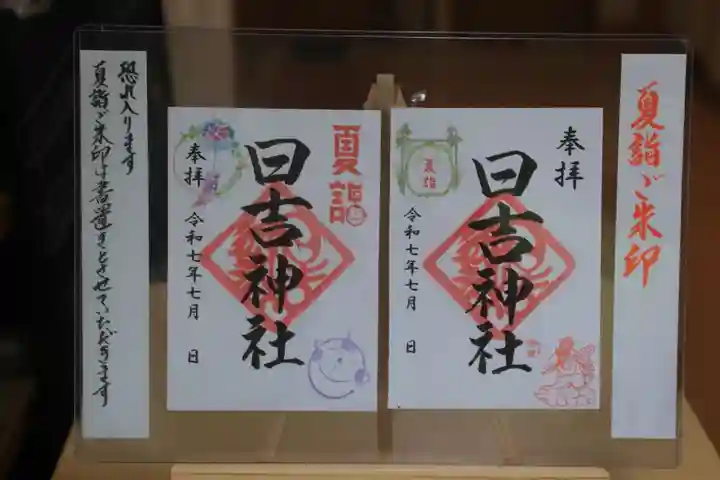 夏詣ご朱印
奉拝
日吉神社
夏詣
令和七年七月 日
夏詣
日吉神社
奉拝
令和七年七月 日
恐れ入ります
夏詣ご朱印は書置きとさせていただきます